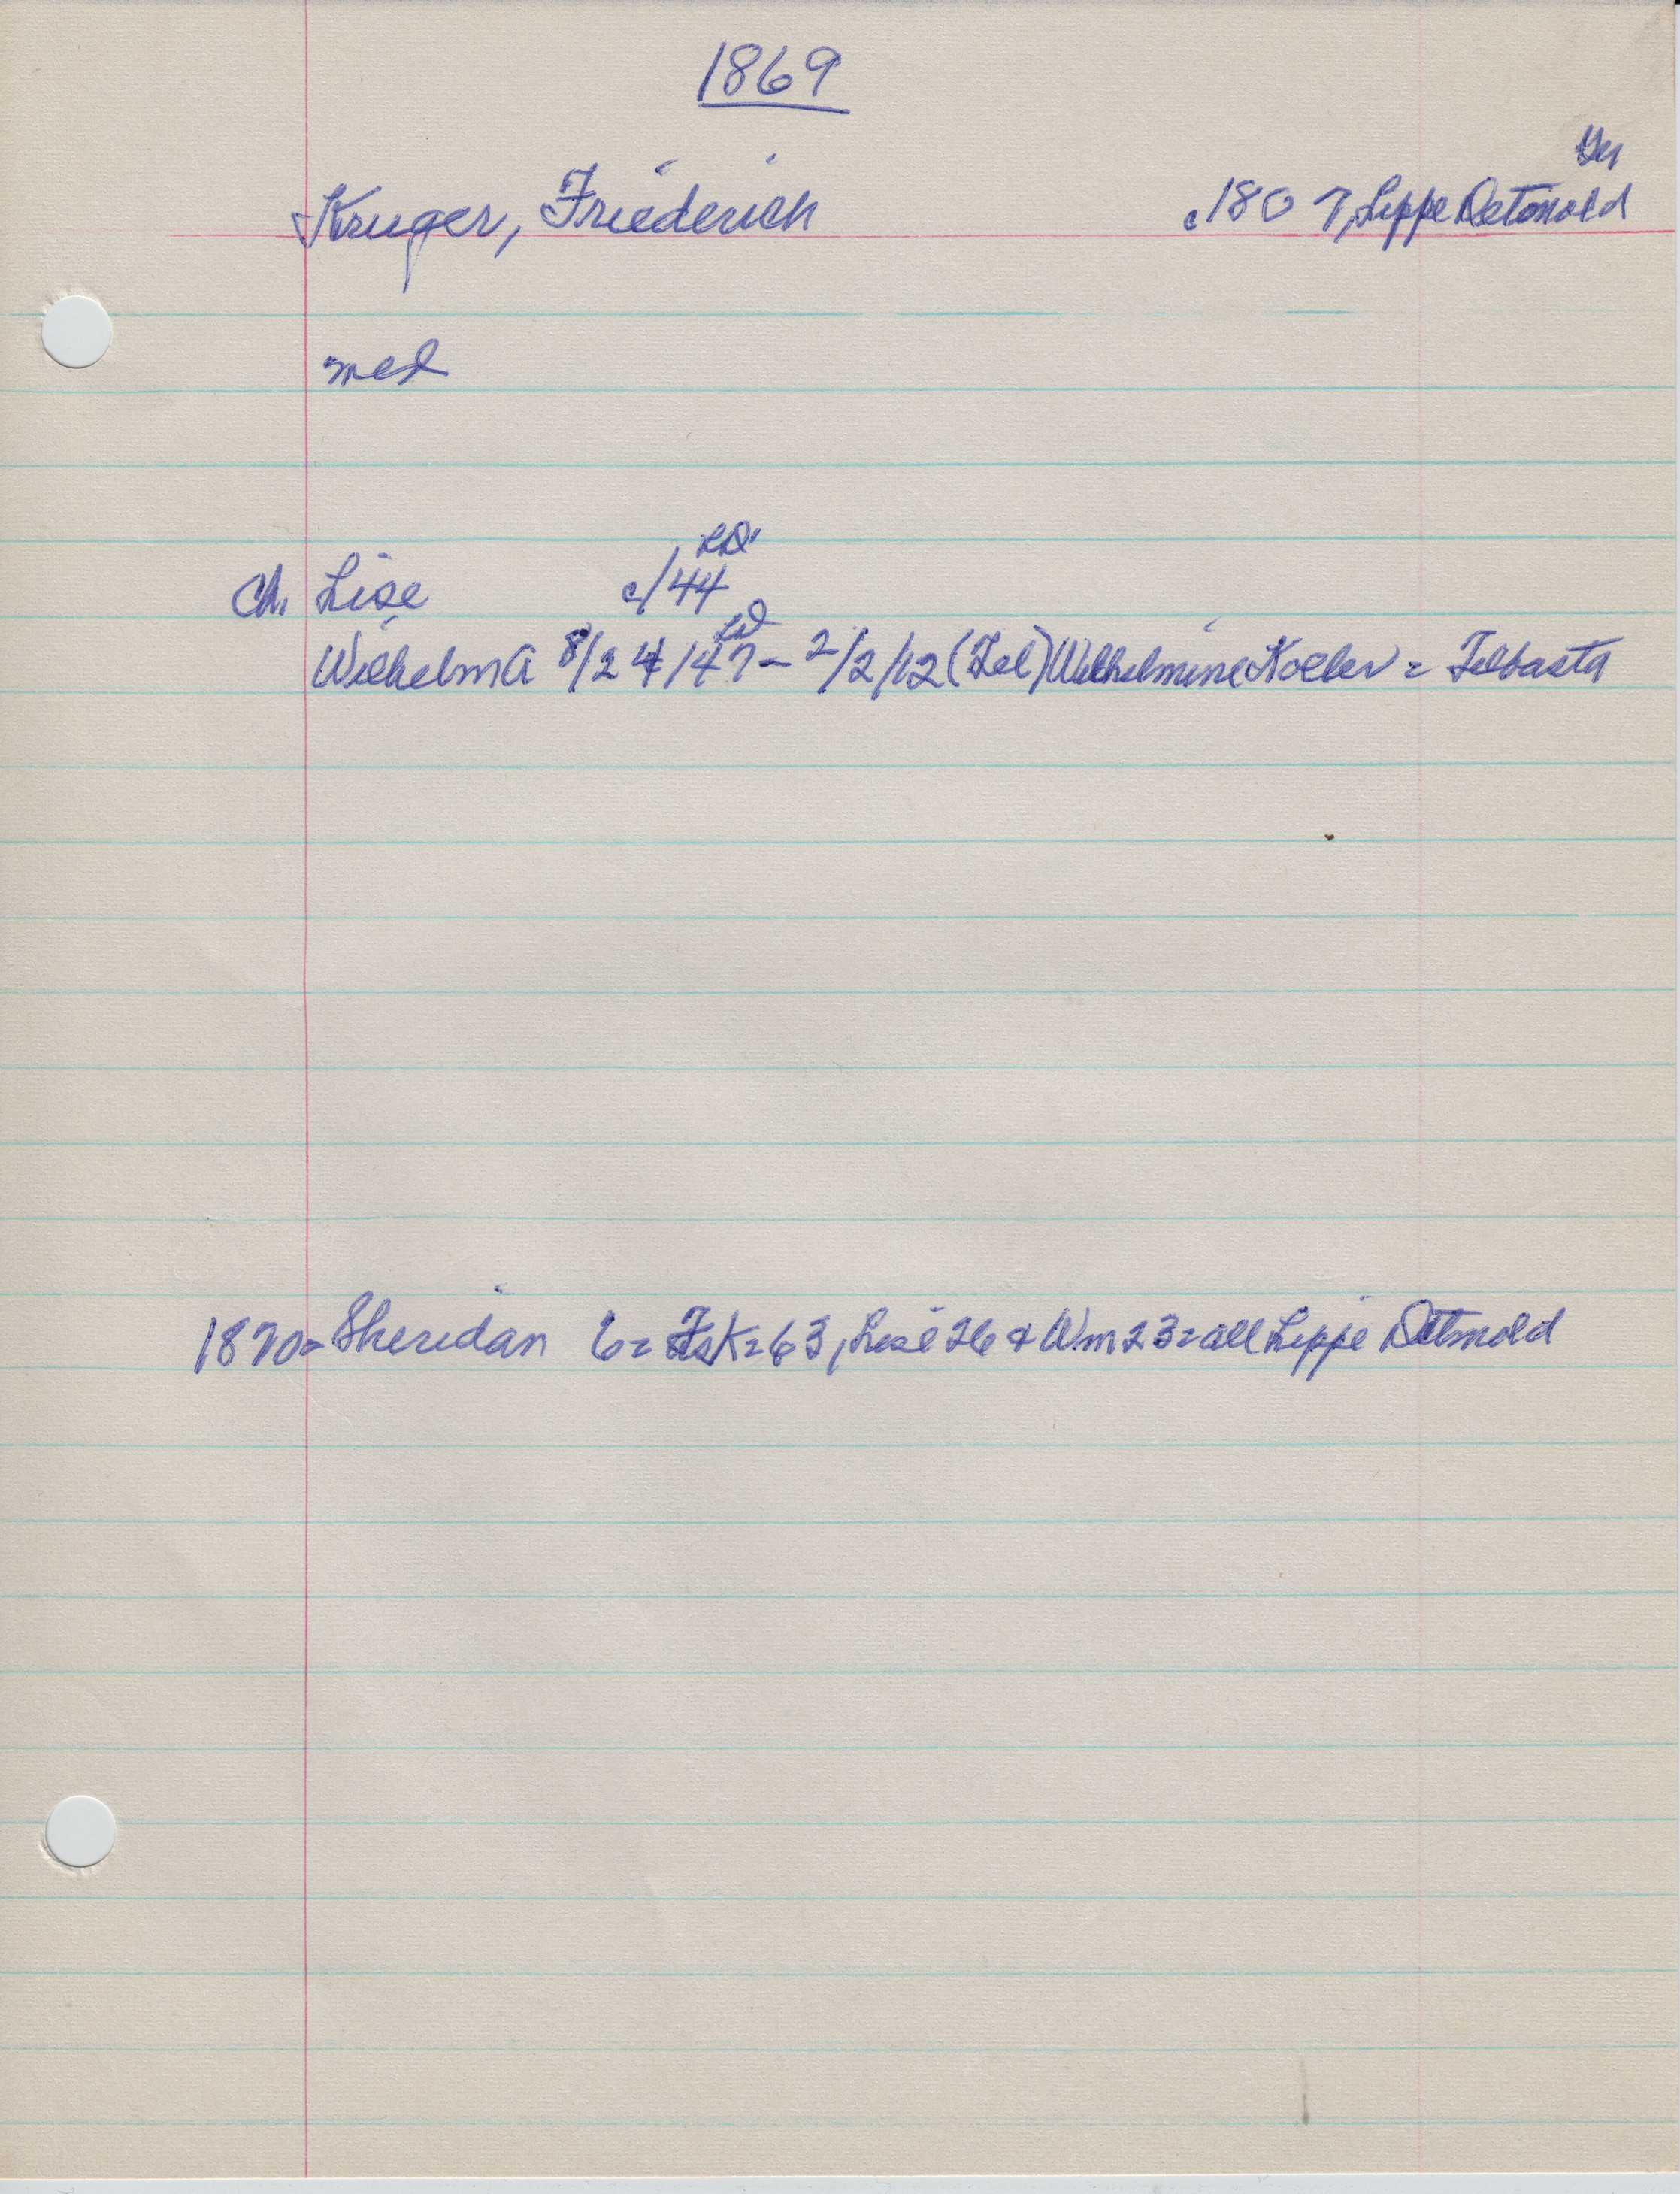 1869
Ger
Kruger, Friederich c 1807, Lippe Detmold
med
LD
Ch. Lise c/44
LD
Wilhelm A 8/24/47 - 2/2/12 (Zel) Wilhelmine Koller =
1870 = Sheridan 6 = K = 63, Lise 26 & Wm 23 = all Lippe Detmold